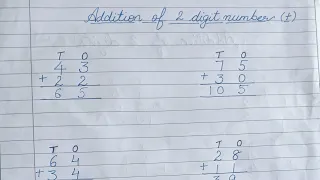 Addition of 2 digit number (+)
T O
4 3
+ 2 2
6 5
T O
7 5
+ 3 0
10 5
T O
6 4
+ 3 4
T O
2 8
+ 1 1
3 9